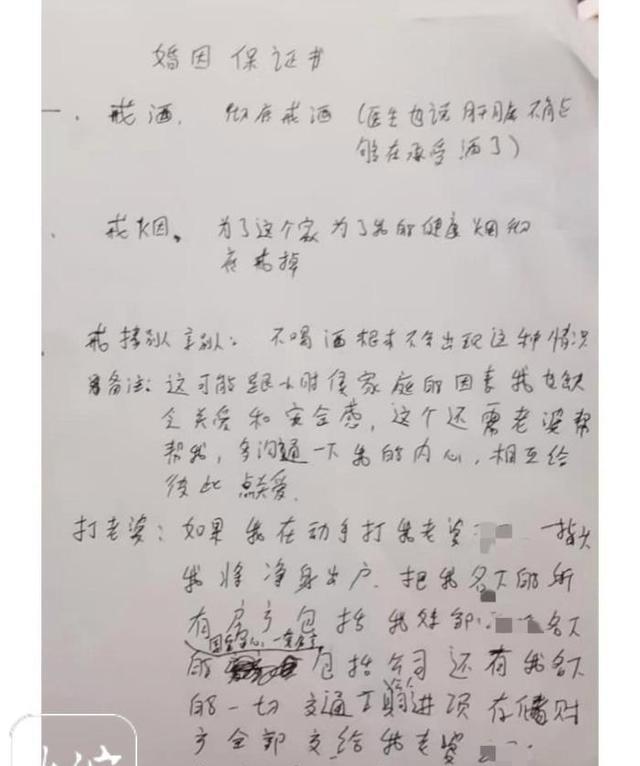 婚因保证书
一、戒酒. 彻底戒酒(医生也说肝脏不能
够在承受酒了)
、戒烟。为了这个家为了我的健康烟彻
底戒掉
戒: 不喝酒根本不会出现这种情况
备注: 这可能跟小时侯家庭的因素我也缺
乏关爱和安全感, 这个还需老婆帮
帮我, 多沟通一下我的内心, 相互给
彼此点关爱.
打老婆: 如果我在动手打我老婆 一指头
我将净身出户. 把我名下的所
有房产包括我妹 名下
的 包括公司还有我名下
的一切交通工具 存储财
产全部交给我老婆